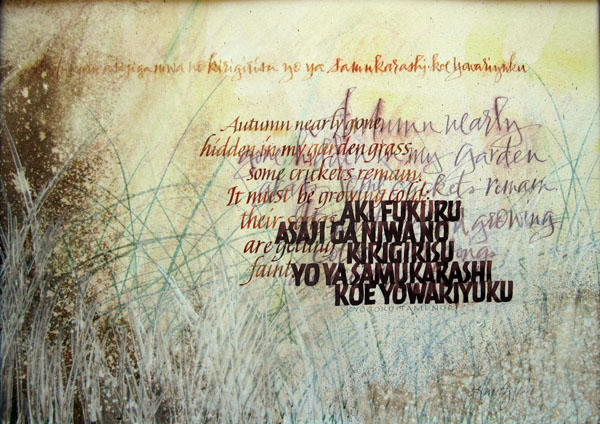 asaji ga niwa no kirigirisu yo ya samukarashi koe yowariyuku
Autumn nearly gone
hidden in my garden grass
some crickets remain.
It must be growing cold:
their
are getting
faint
Autumn nearly
in my garden
crickets remain
growing
songs
AKI FUKURU
ASAJI GA NIWA NO
KIRIGIRISU
YO YA SAMUKARASHI
KOE YOWARIYUKU